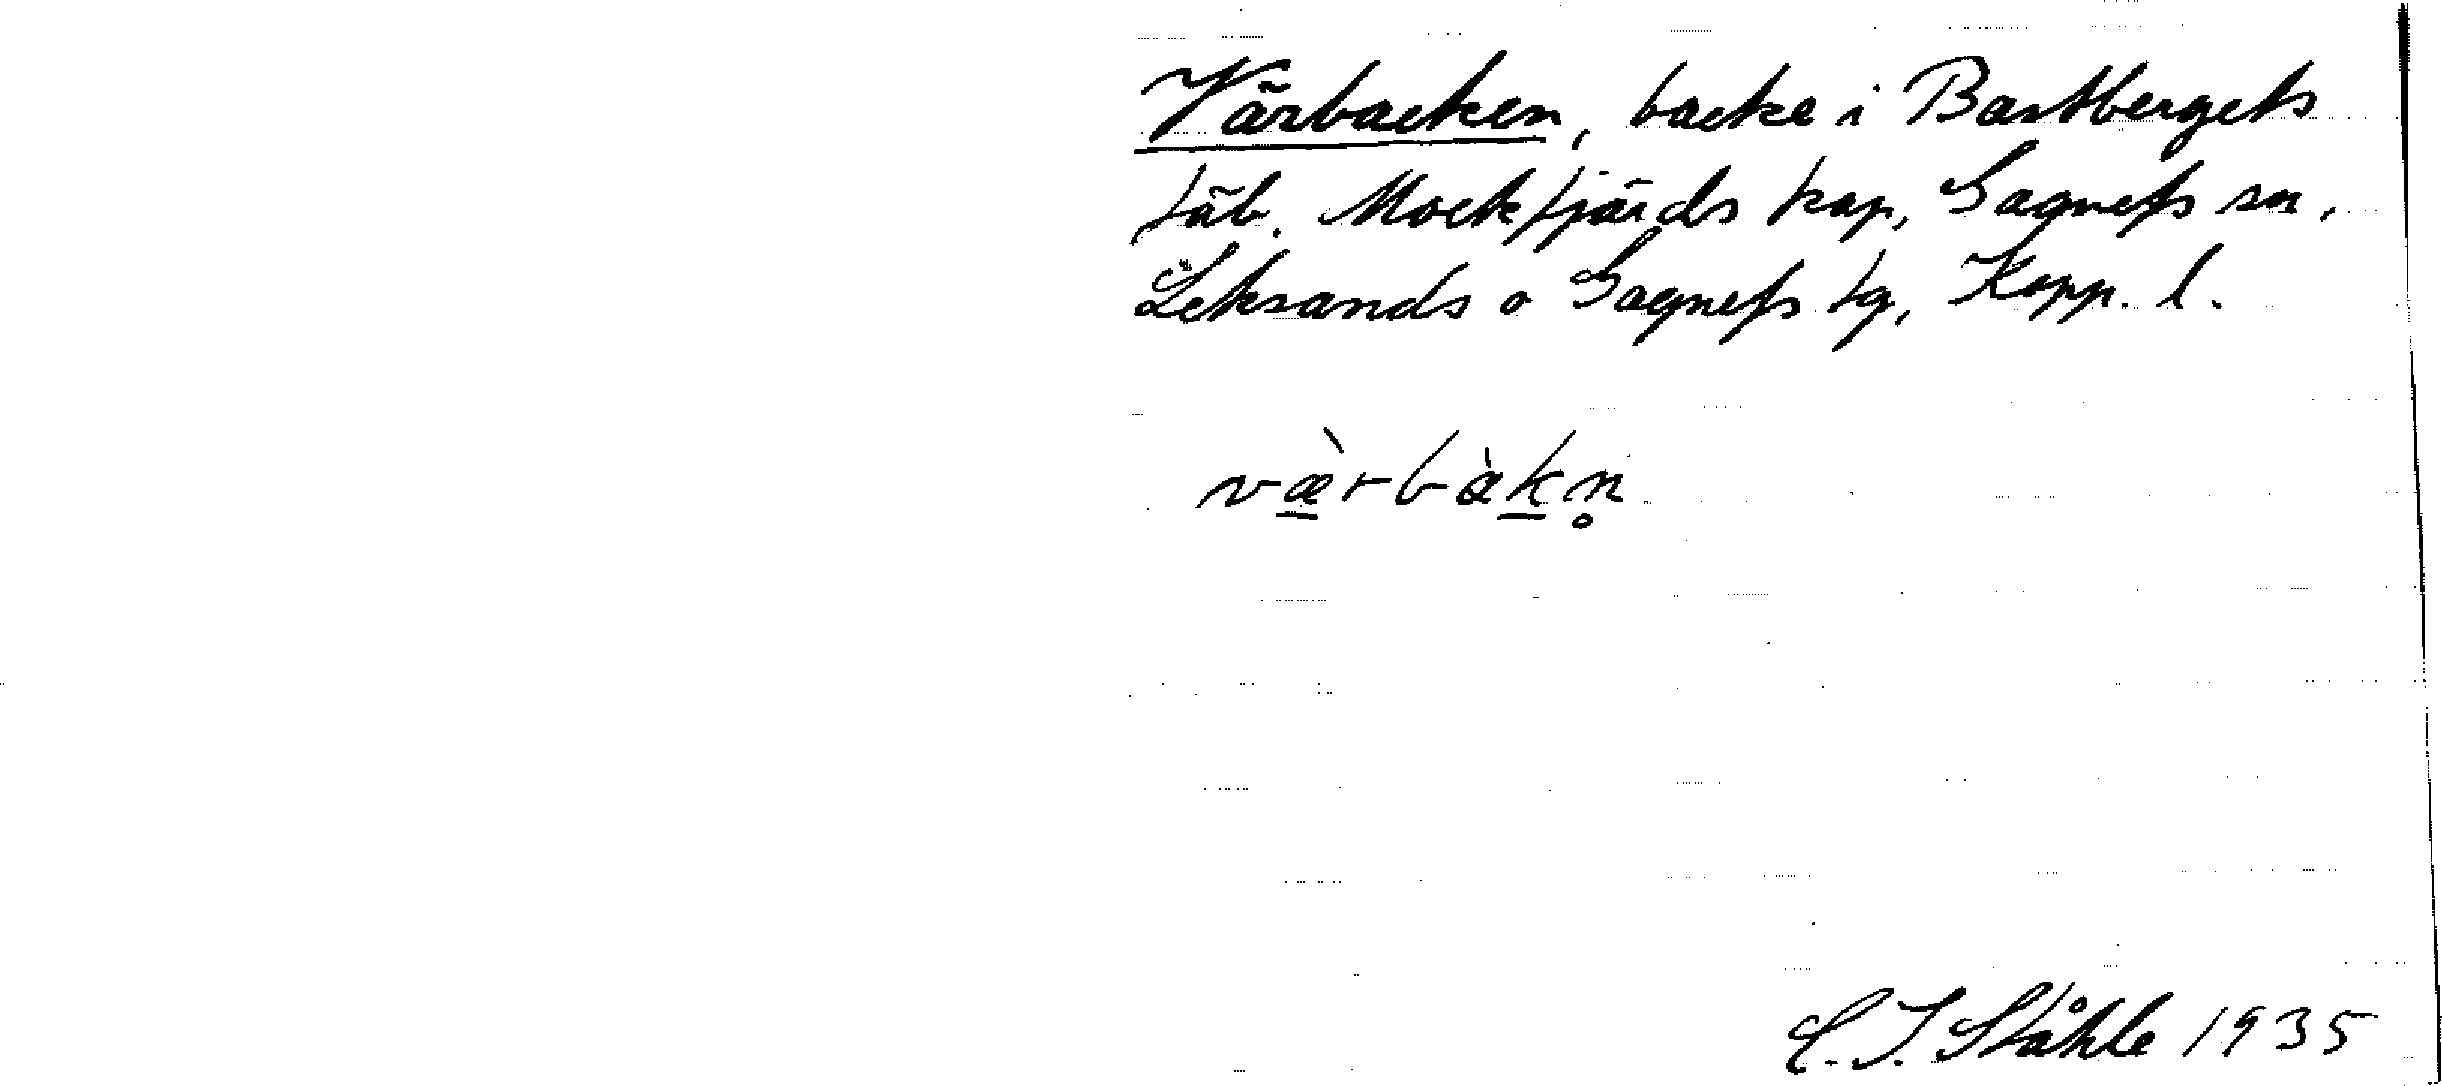 Värbacken, backe i Bastbergets
fäb. Mockfjärds kap, Gagnefs sn,
Leksands o Gagnefs tg, Kopp. l.
væ̀rbàkn̥
C. I. Ståhle 1935